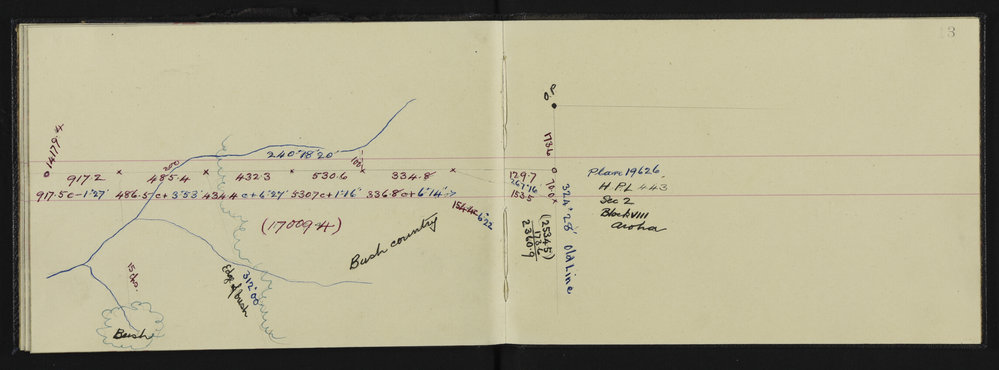 13
O.P
14179.4
917.2
200
485.4
432.3
240°18'20"
530.6
100
334.8
129.7
267°16
153.5
917.5 c-1°27' 486.5 c+3°53' 434.4 c+6°27' 530.7 c+1°16' 336.8 c+6°14'
6°22
(17009.4)
Bush country
Edge of bush
312°00'
Bush
173.6
70.0
324°28' Old Line
(2534.5)
173.6
2360.9
Plan 19626
H.P.L 443
Sec 2
Block VIII
Aroha